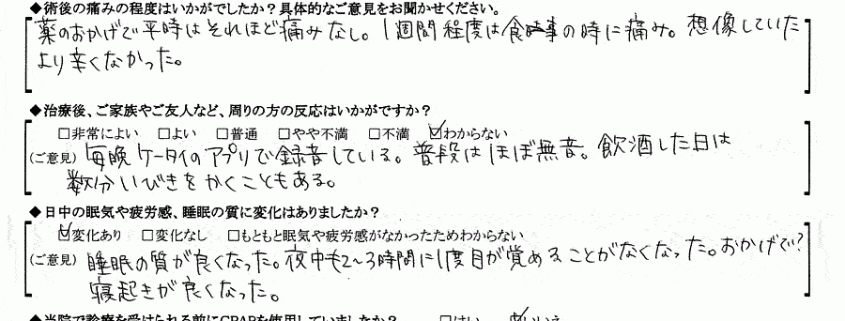 ◆術後の痛みの程度はいかがでしたか？具体的なご意見をお聞かせください。
薬のおかげで平時はそれほど痛みなし。1週間程度は食事の時に痛み。想像していた
より辛くなかった。
◆治療後、ご家族やご友人など、周りの方の反応はいかがですか？
□非常によい □よい □普通 □やや不満 □不満 ☑わからない
(ご意見) 毎晩ケータイのアプリで録音している。普段はほぼ無音。飲酒した日は
数分いびきをかくこともある。
◆日中の眠気や疲労感、睡眠の質に変化はありましたか？
☑変化あり □変化なし □もともと眠気や疲労感がなかったためわからない
(ご意見) 睡眠の質が良くなった。夜中も2〜3時間に1度目が覚めることがなくなった。おかげで？
寝起きが良くなった。
◆当院で診療を受けられる前にCPAPを使用していましたか？ □はい ☑いいえ